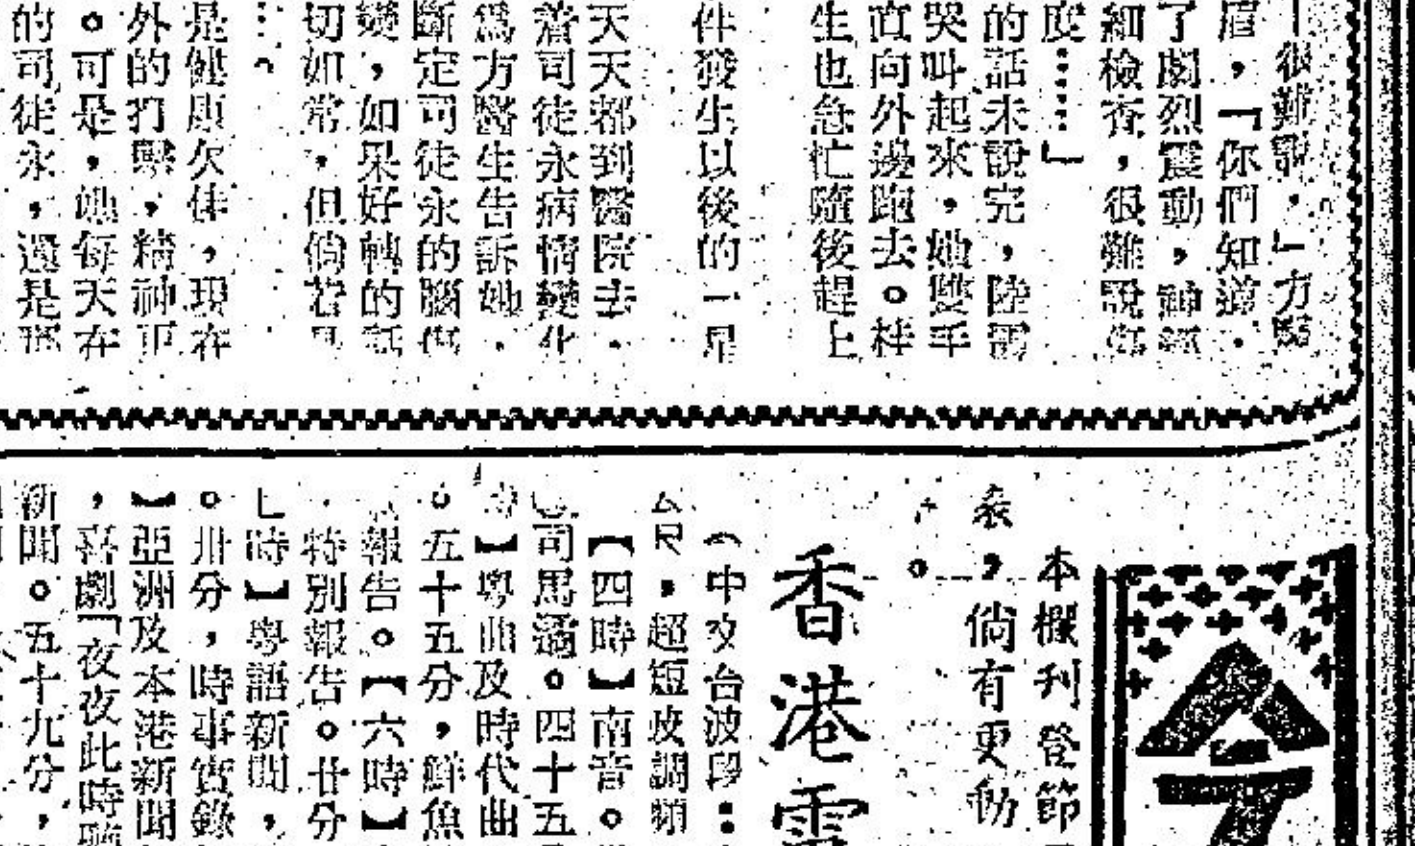 很難說，」方醫
眉，「你們知道，
了劇烈震動，神經
細檢查，很難說傷
度……」
的話未說完，陸雲
哭叫起來，她雙手
直向外邊跑去。桂
生也急忙隨後趕上
件發生以後的一星
天天都到醫院去，
着司徒永病情變化
為方醫生告訴她，
斷定司徒永的腦傷
變，如果好轉的話
切如常，但倘若
…
是健康欠佳，現在
外的打擊，精神更
。可是，她每天在
的司徒永，還是
今
本欄刊登節
表，倘有更動
。
香港電
（中文台波段：
公尺，超短波調頻
【四時】南音。
司馬遹。四十五
】粵曲及時代曲
。五十五分，鮮魚
報告。【六時】
，特別報告。廿分
七時】粵語新聞，
。卅分，時事實錄
】亞洲及本港新聞
，喜劇「夜夜此時
新聞。五十九分，